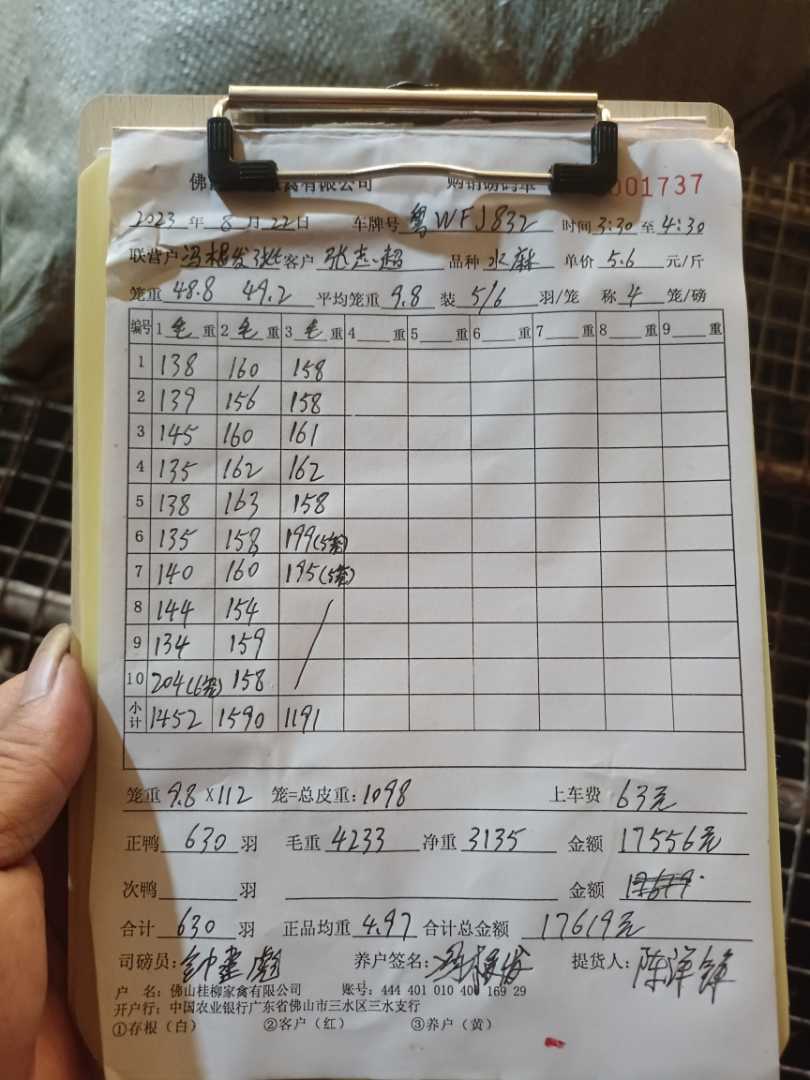 佛山 家禽有限公司 购销磅码单 001737
2023年8月22日 车牌号 粤WFJ832 时间3:30至4:30
联营户 冯根发 客户 张志超 品种 水麻 单价 5.6 元/斤
笼重 48.8 49.2 平均笼重 9.8 装 5/6 羽/笼 称 4 笼/磅
编号 1 毛 重 2 毛 重 3 毛 重 4 重 5 重 6 重 7 重 8 重 9 重
1 138 160 158
2 139 156 158
3 145 160 161
4 135 162 162
5 138 163 158
6 135 158 199(5笼)
7 140 160 195(5笼)
8 144 154
9 134 159
10 204(6笼) 158
小计 1452 1590 1191
笼重 9.8×112 笼=总皮重:1098 上车费 63元
正鸭 630 羽 毛重 4233 净重 3135 金额 17556元
次鸭 羽 金额
合计 630 羽 正品均重 4.97 合计总金额 17619元
司磅员: 养户签名: 提货人:
户 名:佛山桂柳家禽有限公司 账号:444 401 010 400 169 29
开户行:中国农业银行广东省佛山市三水区三水支行
①存根(白) ②客户(红) ③养户(黄)